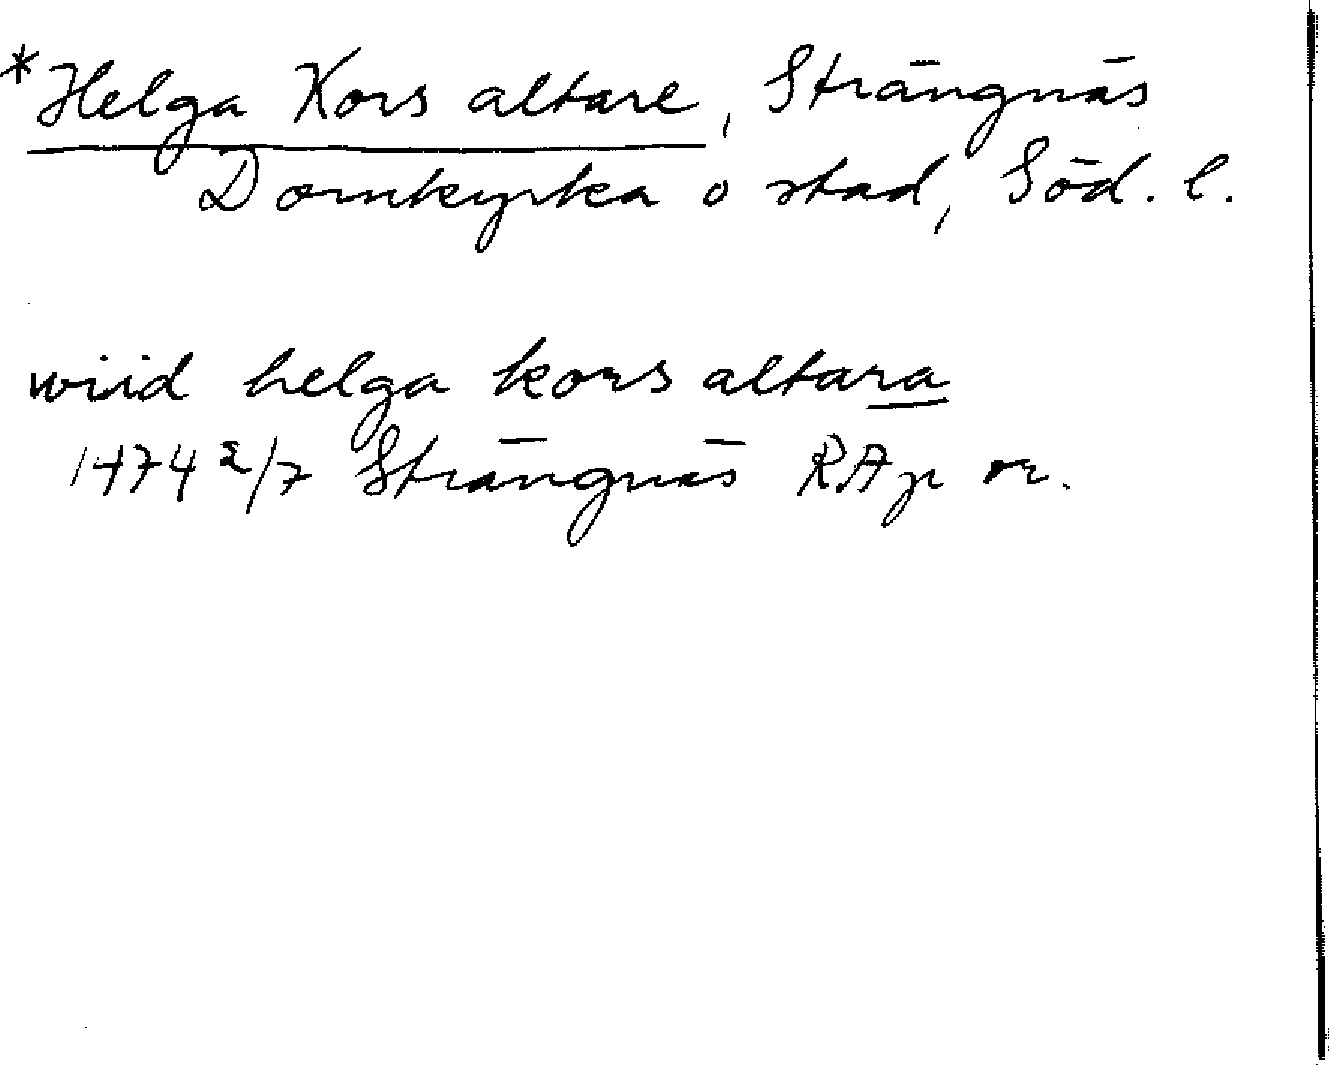 *Helga Kors altare, Strängnäs
Domkyrka o stad, Söd. l.
wiid helga kors altara
1474 2/7 Strängnäs RAp or.